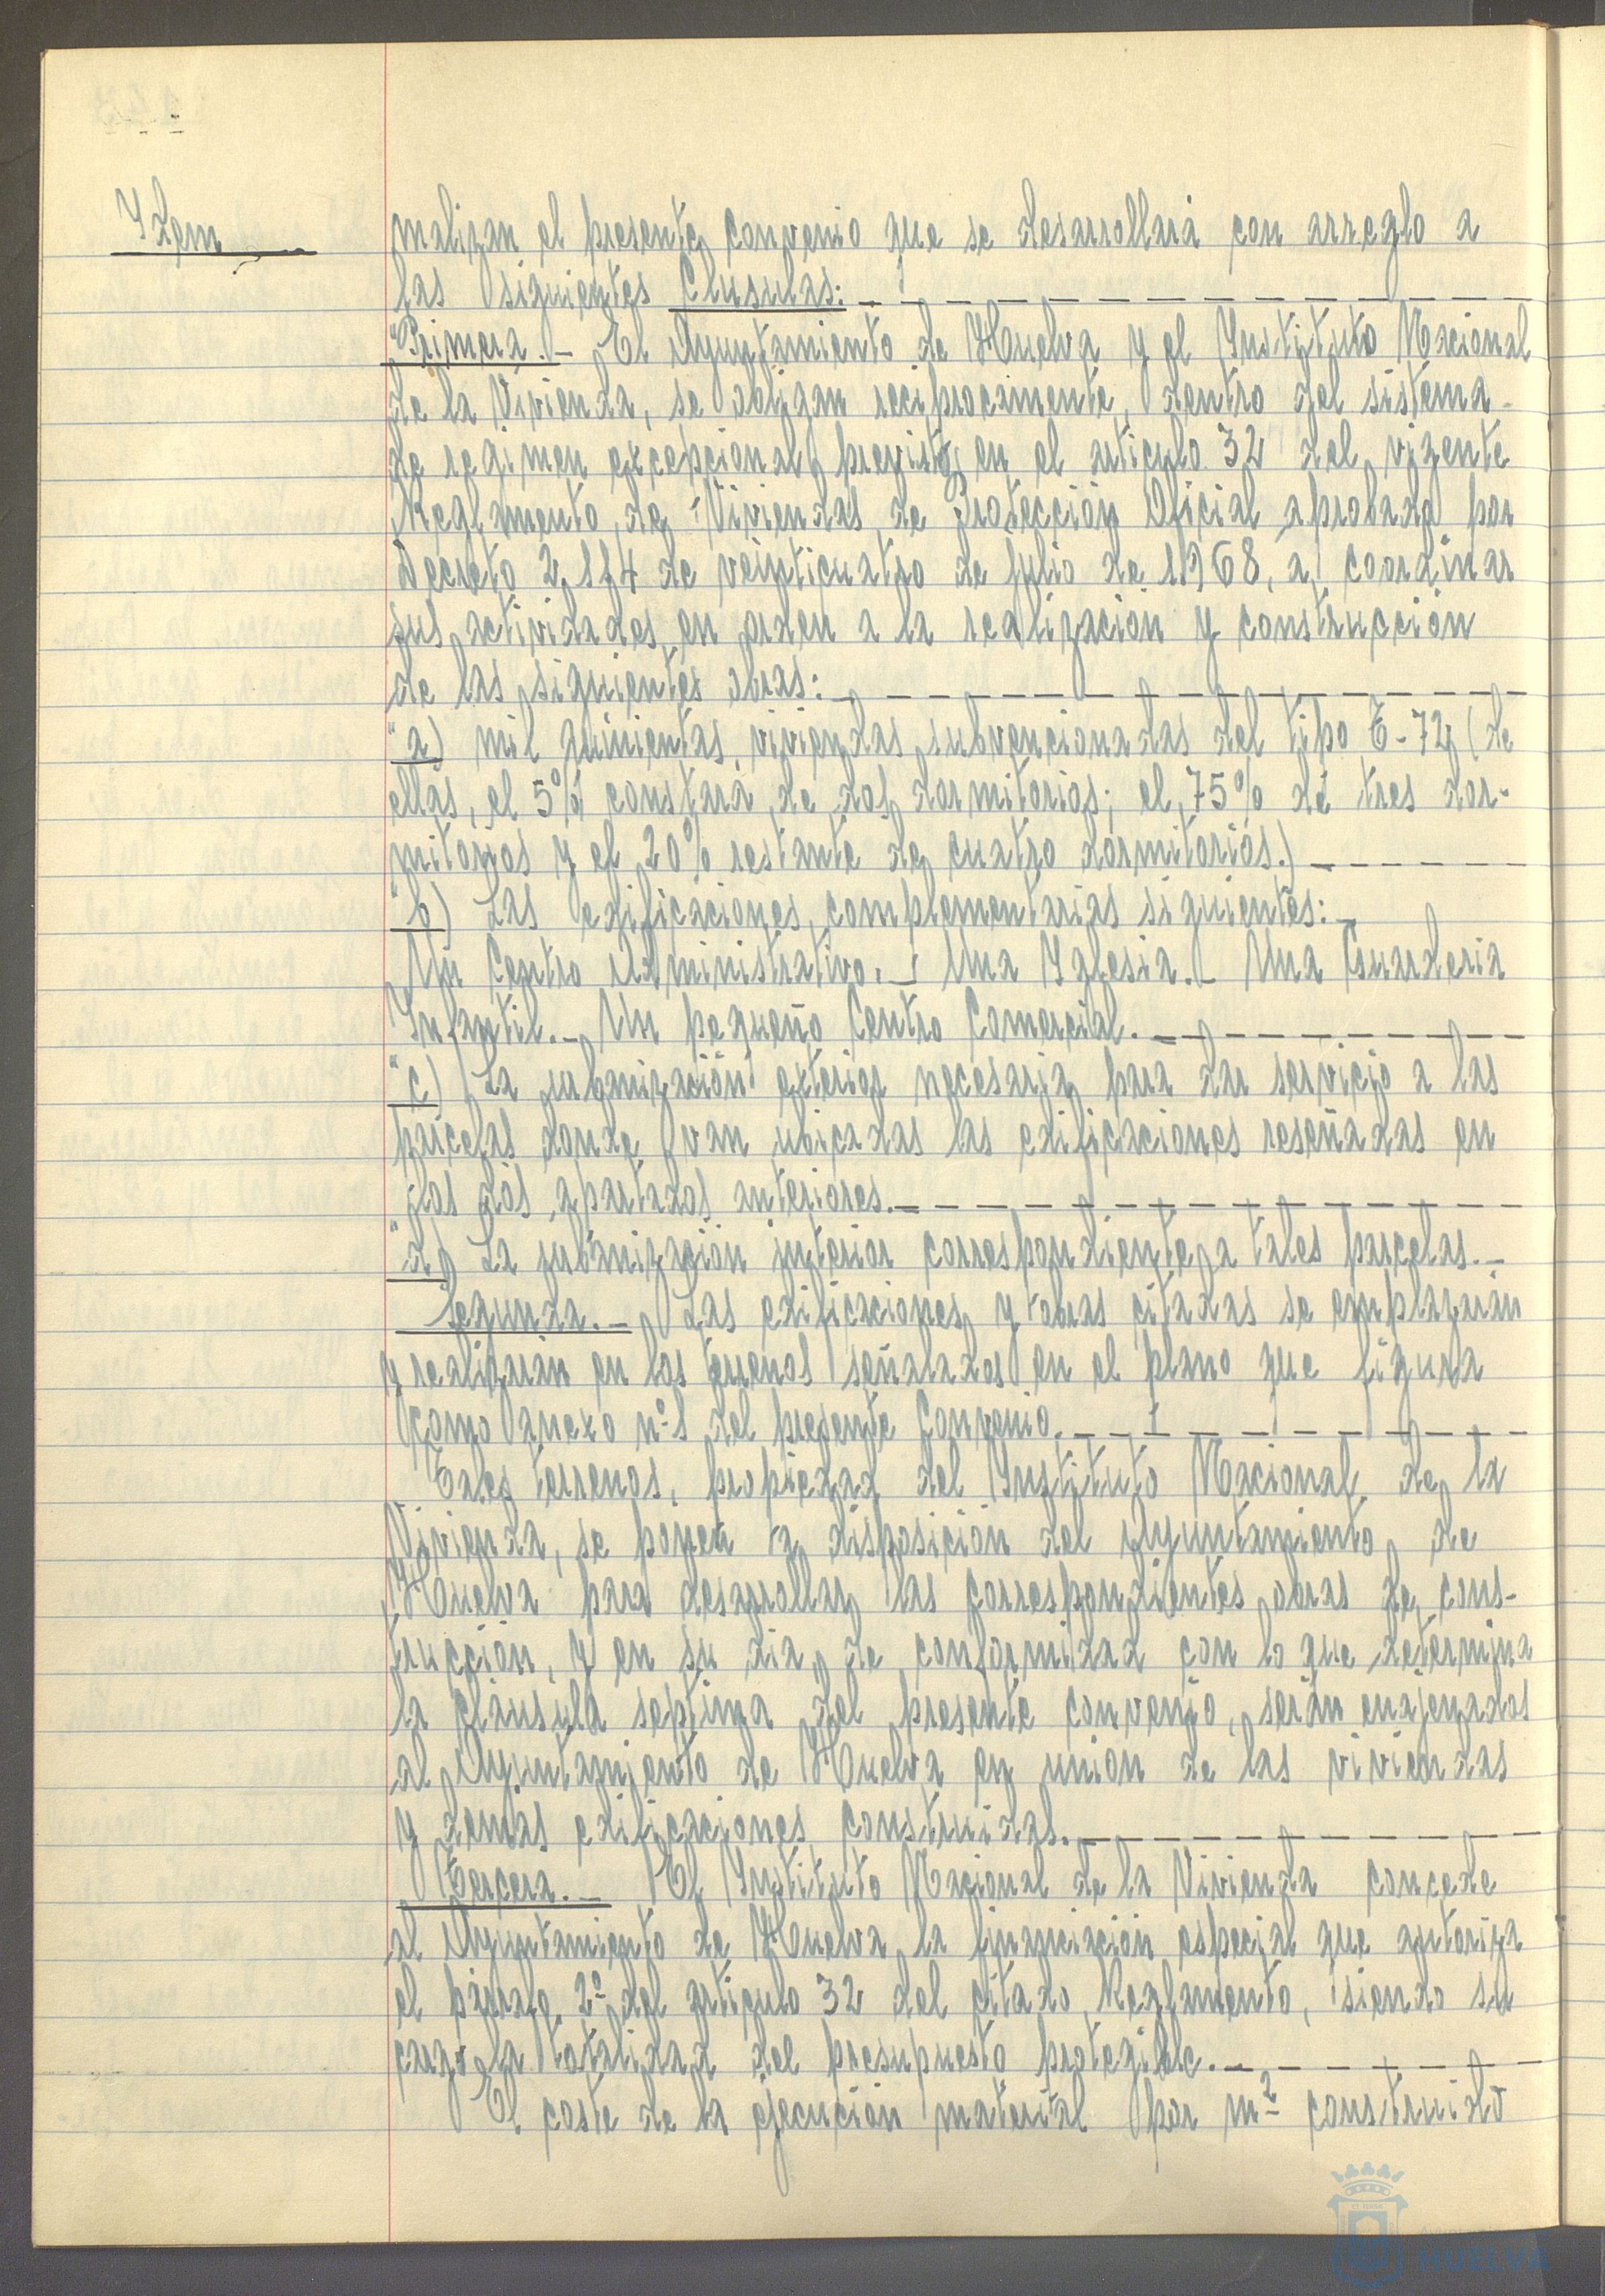 Idem
malizan el presente convenio que se desarrollará con arreglo a
las siguientes Clusulas:
"Primera.- El Ayuntamiento de Huelva y el Instituto Nacional
de la Vivienda, se obligan reciprocamente, dentro del sistema
de regimen excepcional previsto en el articulo 32 del vigente
Reglamento de Viviendas de Protección Oficial aprobado por
Decreto 2.114 de veinticuatro de julio de 1.968, a coordinar
sus actividades en orden a la realización y construcción
de las siguientes obras:
"a) mil quinientas viviendas subvencionadas del tipo E-72 (de
ellas, el 5% constará de dos dormitorios; el 75% de tres dor-
mitorios y el 20% restante de cuatro dormitorios.)
"b) Las edificaciones complementarias siguientes:-
Un Centro Administrativo.- Una Iglesia.- Una Guarderia
Infantil.- Un pequeño Centro Comercial.-
"c) La urbanización exterior necesaria para dar servicio a las
parcelas donde van ubicadas las edificaciones reseñadas en
los dos apartados anteriores.-
"d) La urbanización interior correspondiente a tales parcelas.-
Segunda.- Las edificaciones y obras citadas se emplazarán
y realizarán en los terrenos señalados en el plano que figura
como anexo nº 1 del presente Convenio.
Tales terrenos, propiedad del Instituto Nacional de la
Vivienda, se ponen a disposición del Ayuntamiento de
Huelva para desarrollar las correspondientes obras de cons-
trucción, y en su dia, de conformidad con lo que determina
la cláusula septima del presente convenio, serán enajenados
al Ayuntamiento de Huelva en unión de las viviendas
y demas edificaciones construidas.
Tercera.- El Instituto Nacional de la Vivienda concede
al Ayuntamiento de Huelva la financiación especial que autoriza
el párrafo 2º del articulo 32 del citado Reglamento, siendo su
la totalidad del presupuesto protegible.-
El coste de la ejecución material por m² construido
HUELVA